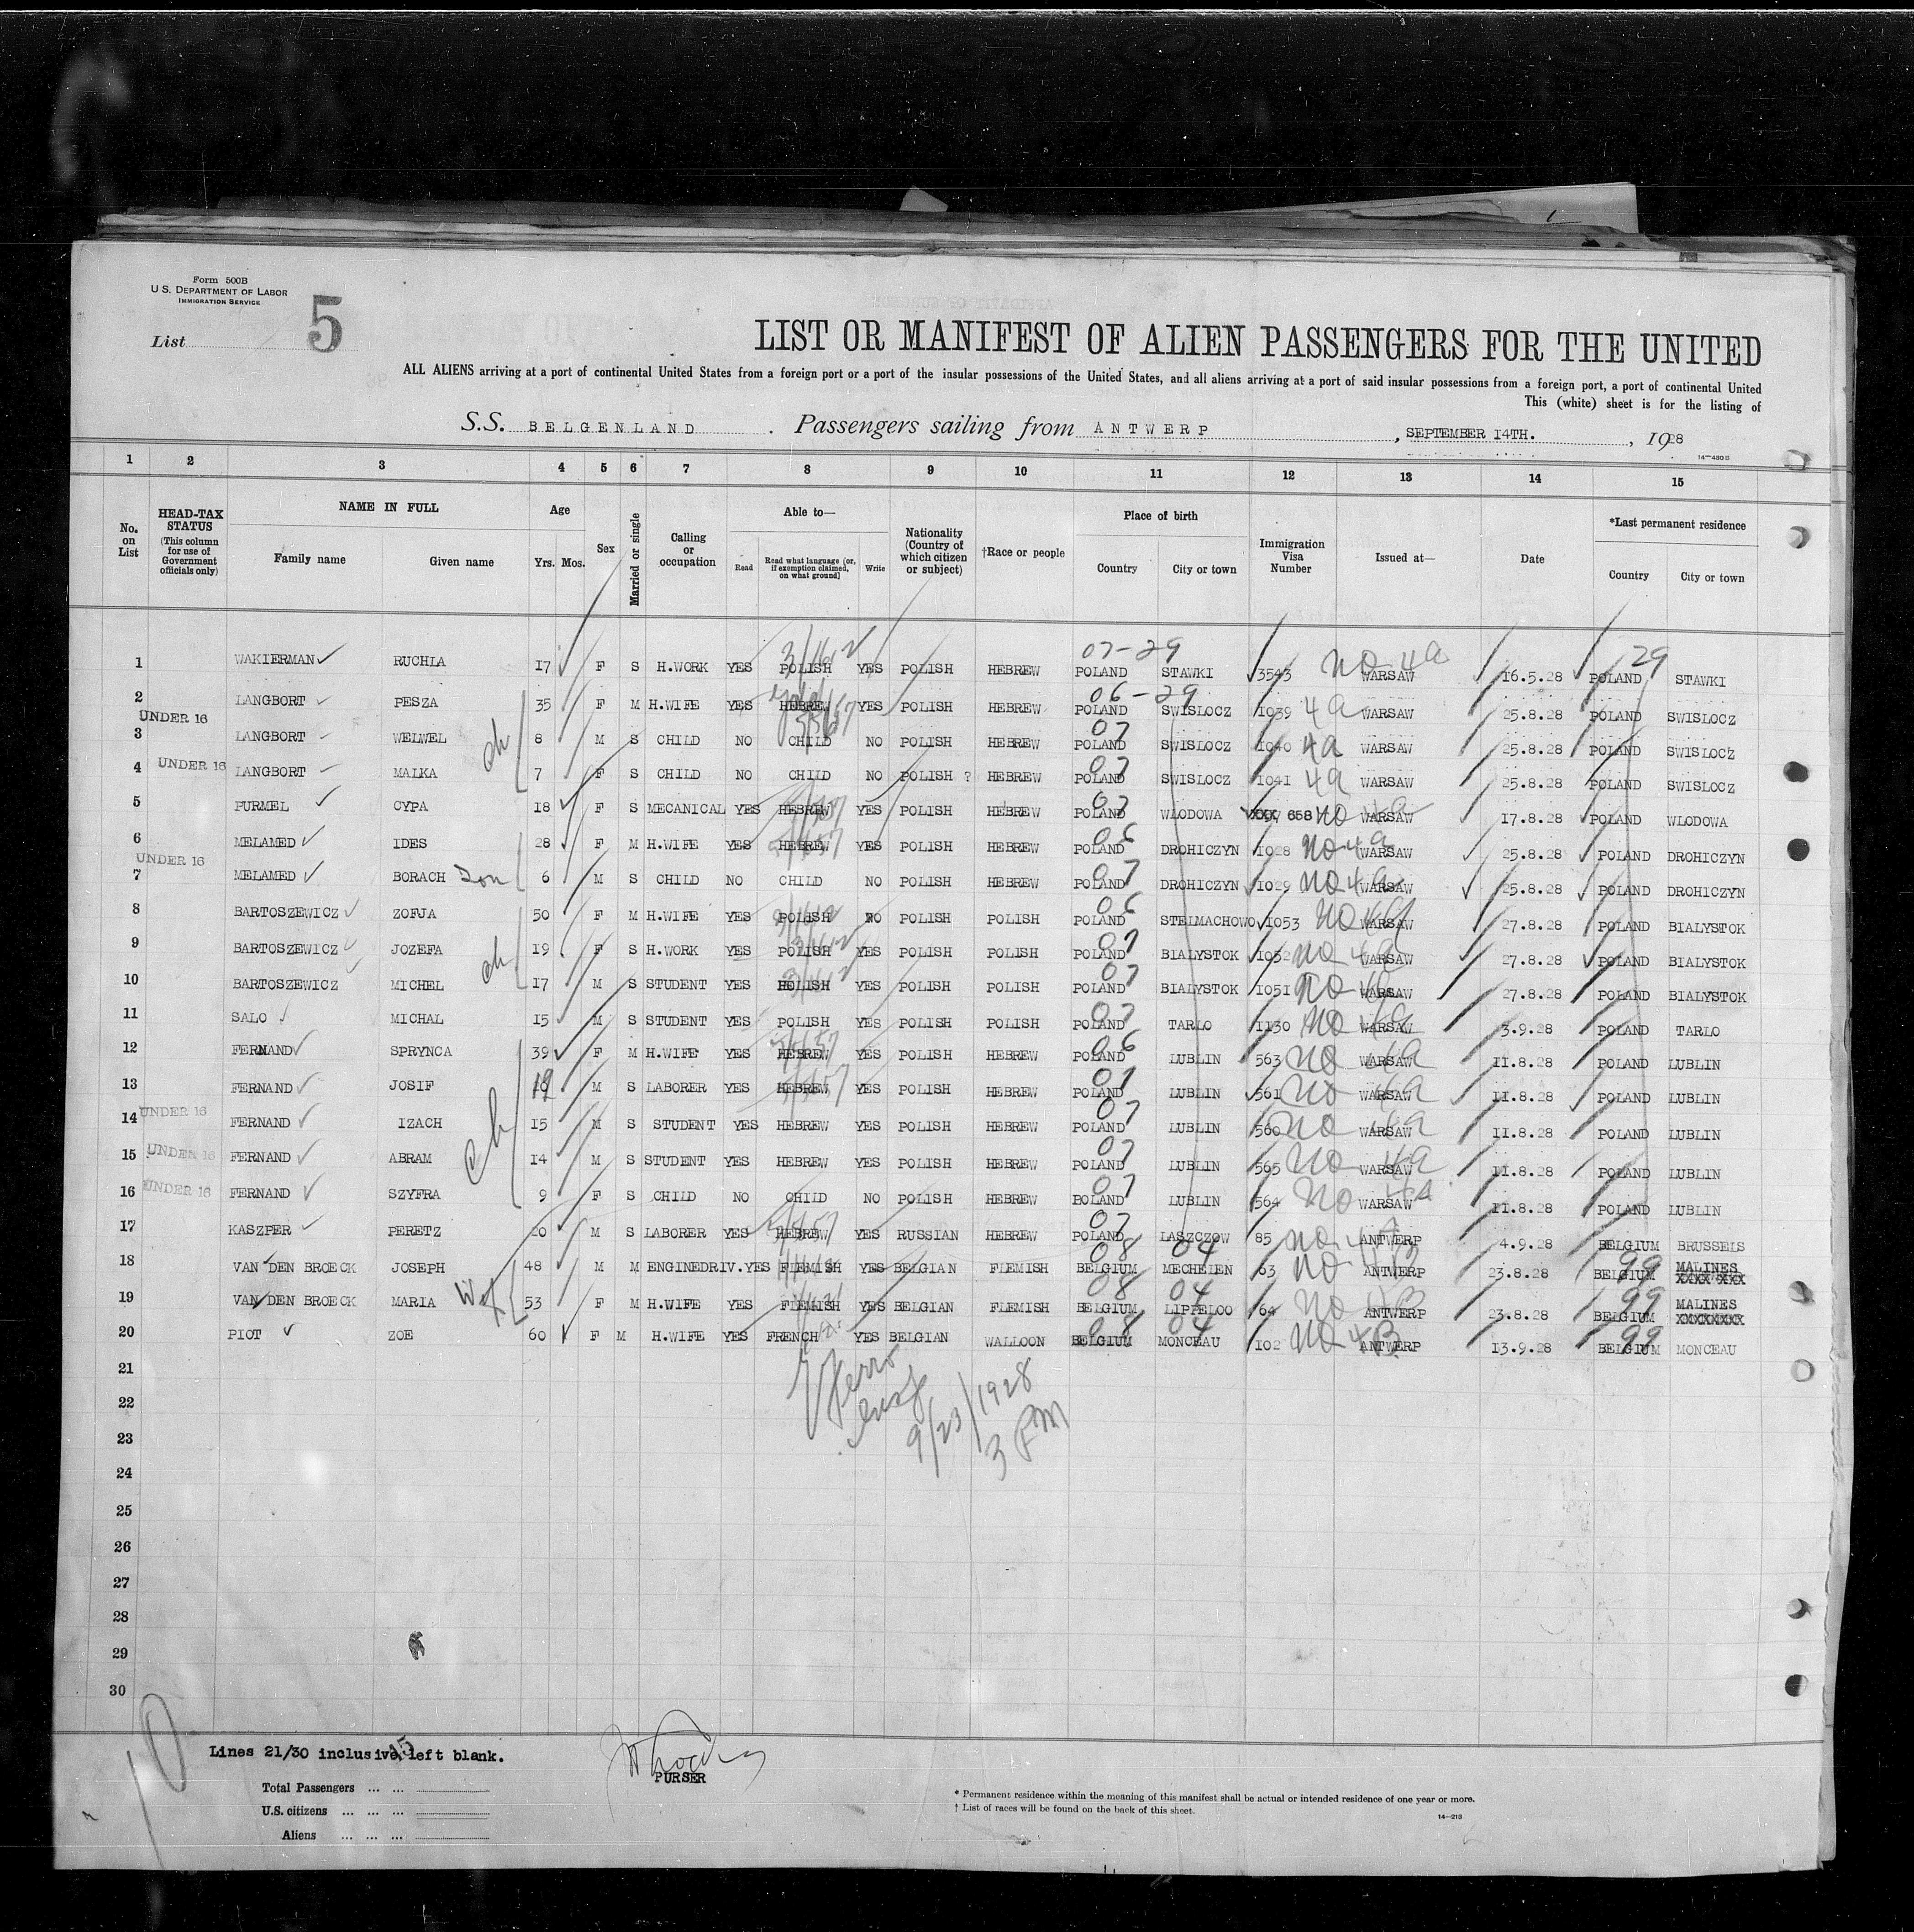 Form 500B
U.S. DEPARTMENT OF LABOR
IMMIGRATION SERVICE
List 5
LIST OR MANIFEST OF ALIEN PASSENGERS FOR THE UNITED
ALL ALIENS arriving at a port of continental United States from a foreign port or a port of the insular possessions of the United States, and all aliens arriving at a port of said insular possessions from a foreign port, a port of continental United
This (white) sheet is for the listing of
S.S. BELGENLAND . Passengers sailing from ANTWERP , SEPTEMBER 14TH. , 1928
14-480 B
1 2 3 4 5 6 7 8 9 10 11 12 13 14 15
No. on List HEAD-TAX STATUS (This column for use of Government officials only) NAME IN FULL Family name Given name Age Yrs. Mos. Sex Married or single Calling or occupation Able to— Read Read what language (or, if exemption claimed, on what ground) Write Nationality (Country of which citizen or subject) †Race or people Place of birth Country City or town Immigration Visa Number Issued at— Date *Last permanent residence Country City or town
07-29 29
1 WAKIERMAN RUCHLA 17 F S H.WORK YES POLISH YES POLISH HEBREW POLAND STAWKI 3543 NO 4a WARSAW 16.5.28 POLAND STAWKI
06-29
2 LANGBORT PESZA 35 F M H.WIFE YES HEBREW YES POLISH HEBREW POLAND SWISLOCZ 1039 4a WARSAW 25.8.28 POLAND SWISLOCZ
UNDER 16
3 LANGBORT WELWEL ch 8 M S CHILD NO CHILD NO POLISH HEBREW 07 POLAND SWISLOCZ 1040 4a WARSAW 25.8.28 POLAND SWISLOCZ
4 UNDER 16 LANGBORT MALKA 7 F S CHILD NO CHILD NO POLISH ? HEBREW 07 POLAND SWISLOCZ 1041 4a WARSAW 25.8.28 POLAND SWISLOCZ
5 FURMEL CYPA 18 F S MECANICAL YES HEBREW YES POLISH HEBREW 07 POLAND WLODOWA XXX 658 NO 4a WARSAW 17.8.28 POLAND WLODOWA
6 MELAMED IDES 28 F M H.WIFE YES HEBREW YES POLISH HEBREW 06 POLAND DROHICZYN 1028 NO 4a WARSAW 25.8.28 POLAND DROHICZYN
UNDER 16
7 MELAMED BORACH Son 6 M S CHILD NO CHILD NO POLISH HEBREW 07 POLAND DROHICZYN 1029 NO 4a WARSAW 25.8.28 POLAND DROHICZYN
8 BARTOSZEWICZ ZOFJA 50 F M H.WIFE YES POLISH NO POLISH POLISH 06 POLAND STELMACHOWO 1053 NO 4a WARSAW 27.8.28 POLAND BIALYSTOK
9 BARTOSZEWICZ JOZEFA ch 19 F S H.WORK YES POLISH YES POLISH POLISH 07 POLAND BIALYSTOK 1052 NO 4a WARSAW 27.8.28 POLAND BIALYSTOK
10 BARTOSZEWICZ MICHEL 17 M S STUDENT YES POLISH YES POLISH POLISH 07 POLAND BIALYSTOK 1051 NO 4a WARSAW 27.8.28 POLAND BIALYSTOK
11 SALO MICHAL 15 M S STUDENT YES POLISH YES POLISH POLISH 07 POLAND TARLO 1130 NO 4a WARSAW 3.9.28 POLAND TARLO
12 FERNAND SPRYNCA 39 F M H.WIFE YES HEBREW YES POLISH HEBREW 06 POLAND LUBLIN 563 NO 4a WARSAW 11.8.28 POLAND LUBLIN
13 FERNAND JOSIF 19 M S LABORER YES HEBREW YES POLISH HEBREW 07 POLAND LUBLIN 561 NO 4a WARSAW 11.8.28 POLAND LUBLIN
14 UNDER 16 FERNAND IZACH ch 15 M S STUDENT YES HEBREW YES POLISH HEBREW 07 POLAND LUBLIN 560 NO 4a WARSAW 11.8.28 POLAND LUBLIN
15 UNDER 16 FERNAND ABRAM 14 M S STUDENT YES HEBREW YES POLISH HEBREW 07 POLAND LUBLIN 565 NO 4a WARSAW 11.8.28 POLAND LUBLIN
16 UNDER 16 FERNAND SZYFRA 9 F S CHILD NO CHILD NO POLISH HEBREW 07 POLAND LUBLIN 564 NO 4A WARSAW 11.8.28 POLAND LUBLIN
17 KASZPER PERETZ 20 M S LABORER YES HEBREW YES RUSSIAN HEBREW 07 POLAND LASZCZOW 85 NO 4A ANTWERP 4.9.28 BELGIUM BRUSSELS
18 VAN DEN BROECK JOSEPH 48 M M ENGINEDRIV. YES FLEMISH YES BELGIAN FLEMISH 08 04 BELGIUM MECHELEN 63 NO 4B ANTWERP 23.8.28 99 BELGIUM MALINES
19 VAN DEN BROECK MARIA Wf 53 F M H.WIFE YES FLEMISH YES BELGIAN FLEMISH 08 04 BELGIUM LIPPELOO 64 NO 4B ANTWERP 23.8.28 99 BELGIUM MALINES
20 PIOT ZOE 60 F M H.WIFE YES FRENCH YES BELGIAN WALLOON 08 04 BELGIUM MONCEAU 102 NO 4B ANTWERP 13.9.28 99 BELGIUM MONCEAU
21
22
9/23/1928
23
3 PM
24
25
26
27
28
29
30
10
Lines 21/30 inclusive left blank.
15
PURSER
Total Passengers ... ...
U.S. citizens ... ... ...
Aliens ... ... ...
* Permanent residence within the meaning of this manifest shall be actual or intended residence of one year or more.
† List of races will be found on the back of this sheet.
14-213